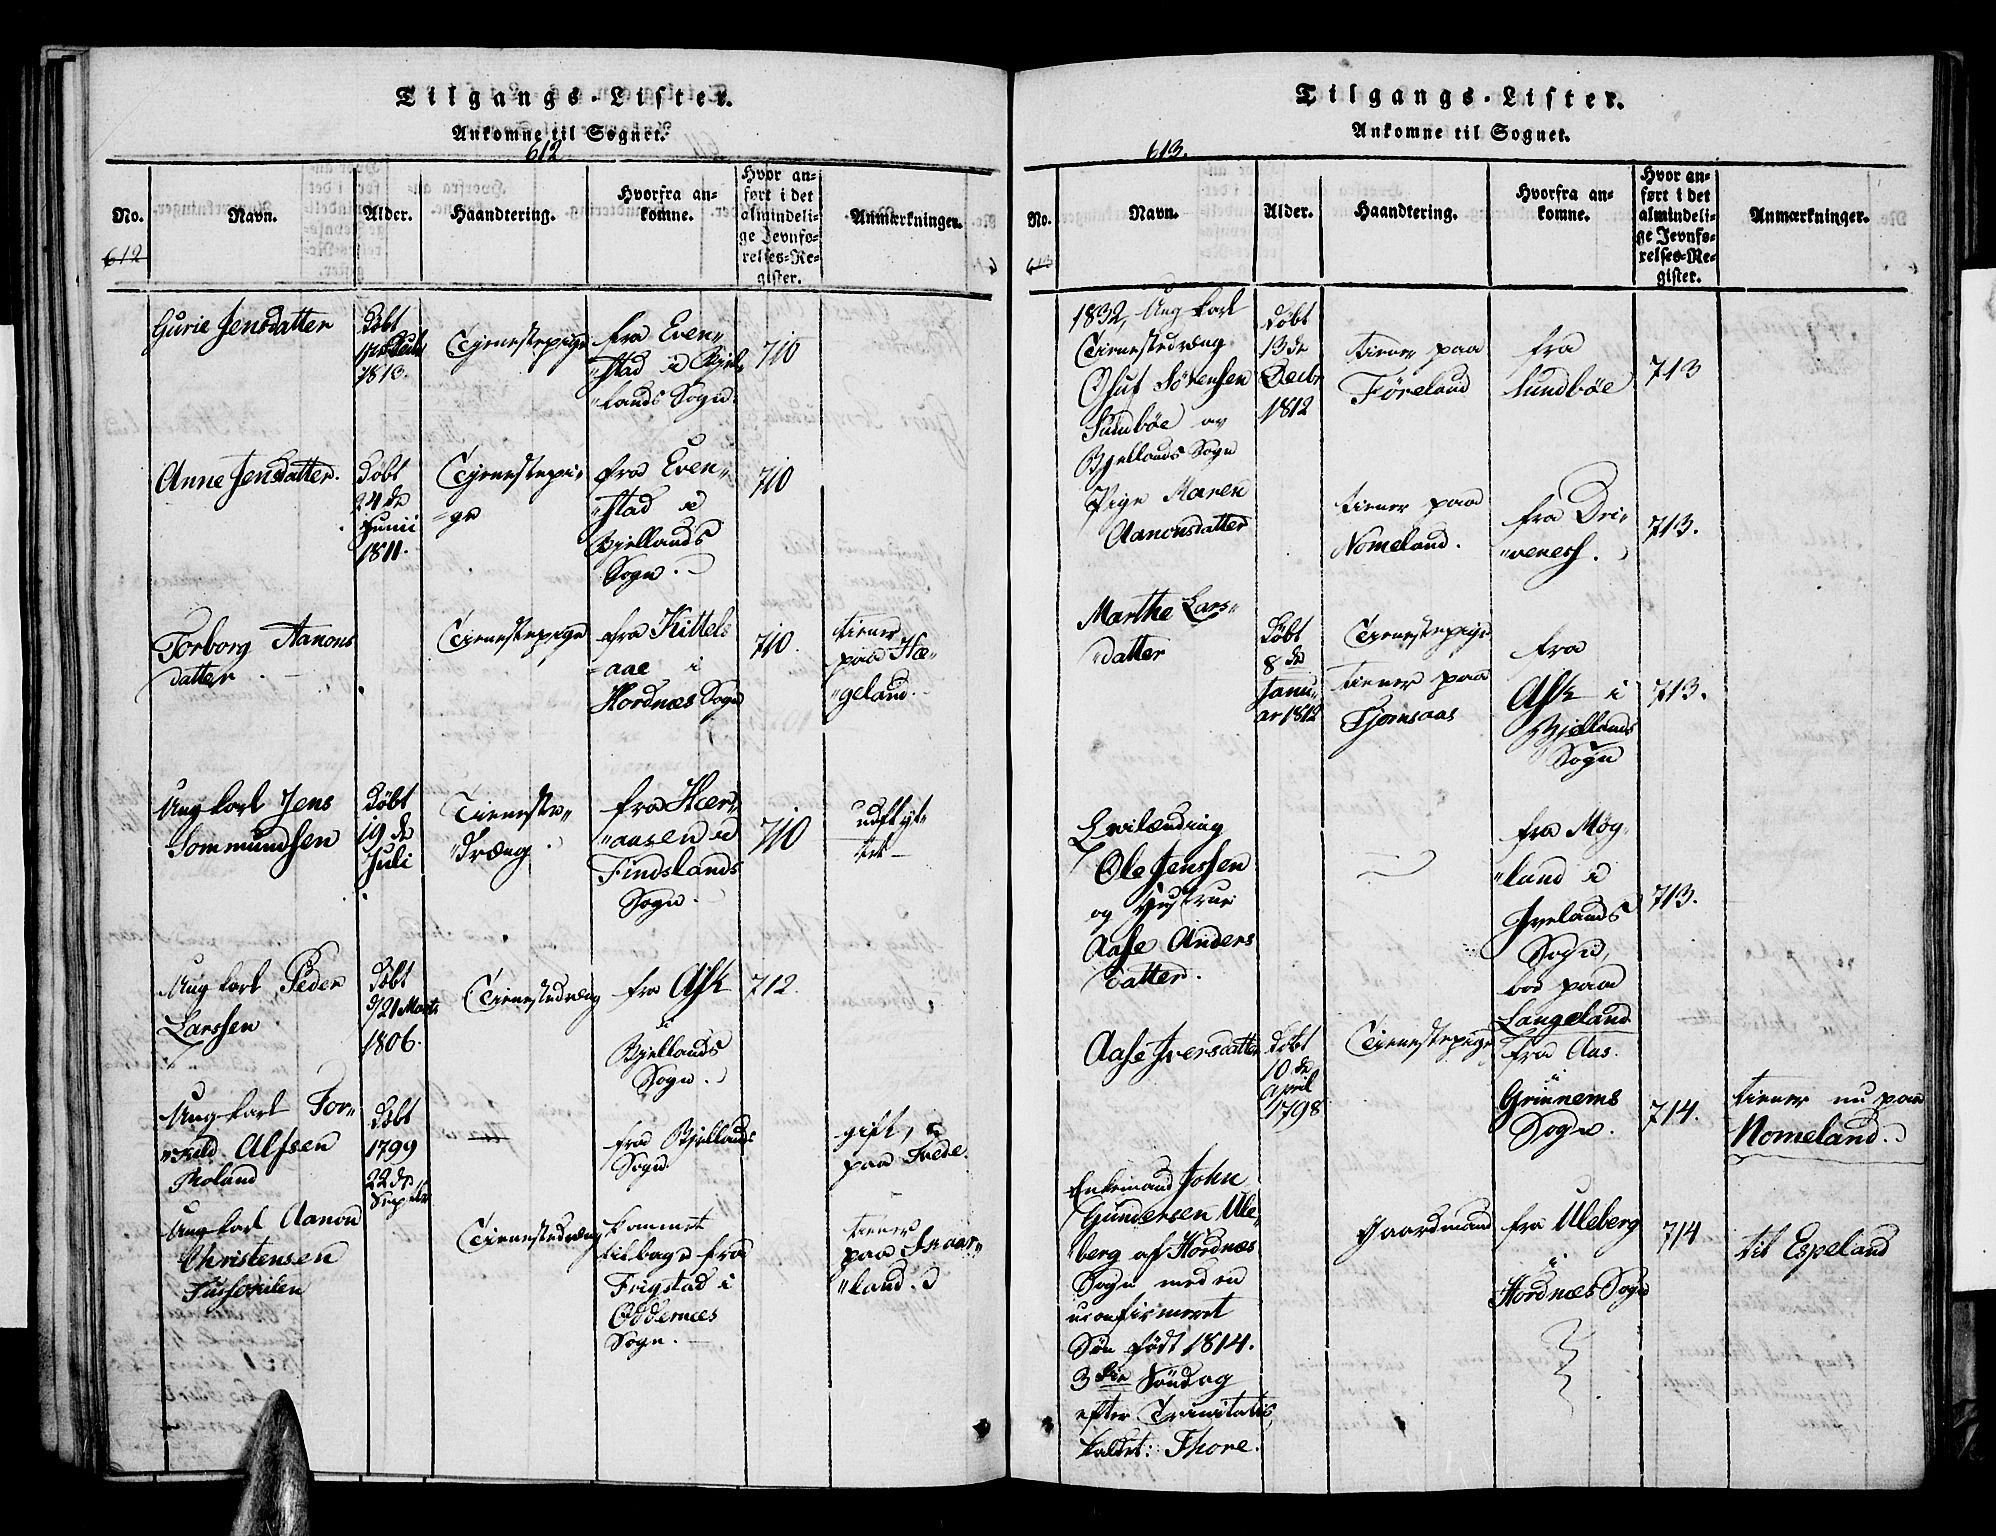 Tilgangs-Lister.
Ankomne til Sognet.
612
No.
Navn.
Alder.
Haandtering.
Hvorfra an-
komne.
Hvor an-
ført i det
almindeli-
ge Jevnfø-
relses-Re-
gister.
Anmærkninger.
612
Gurie Jensdatter
Døbt
1813.
Tjenestepige
fra Even-
stad i Bjel-
lands Sogn.
710
Anne Jensdatter.
Døbt
24 de
Junii
1811.
Tjenestepi-
ge
fra Even-
stad i
Bjellands
Sogn.
710
Torborg Aanons
datter
Tienestepige
fra Kittels
aae i
Hordnæs Sogn
710.
tiener
paa Hæ-
geland.
Ung karl Jens
Gommundsen
Døbt
19 de
Juli
Tieneste-
dræng.
fra Hær-
aasen i
Findslands
Sogn.
710
udflyt-
tet
Ung karl Peder
Larssen
Døbt
21 Marts
1806.
Tienestedræng
fra Ask
i
Bjellands
Sogn.
712.
Ung karl Tor-
kild Alfsen
Røland
Døbt
1799
22 de
Septbr
fra Bjellands
Sogn
gift,
paa Trede.
Ung karl Aanon
Christensen
Tienestedræng
kommet
tilbage fra
Frigstad i
Oddernæs
Sogn.
tiener
paa Ivaar-
land.
Tilgangs-Lister.
Ankomne til Sognet.
613.
No.
Navn.
Alder.
Haandtering.
Hvorfra an-
komne.
Hvor an-
ført i det
almindeli-
ge Jevnfø-
relses-Re-
gister.
Anmærkninger.
613
1832, Ung karl
Tienestedræng
Oluf Sørensen
Sundbøe av
Bjellands Sogn
døbt
13 de
Decbr
1812
tiener paa
Føreland
fra
Sundbøe
713
Pige Maren
Aanonsdatter
tiener paa
Nomeland.
fra Dri-
veness.
713.
Marthe Lars-
datter
Døbt
8 de
Janu-
ar 1812
Tienestepige
tiener paa
Tjomsaas
fra
Ask i
Bjellands
Sogn
713.
Qvilændring
Ole Jenssen
og Hustrue
Aase Anders
datter.
fra Møg-
land i
Ivelands
Sogn,
boe paa
Langeland
713.
Aase Iversdatter
døbt
10 de
April
1798
Tienestepige
fra Aas.
i
Grinnems
Sogn.
714.
tiener nu paa
Nomeland.
Enkemand John
Gundersen Ule-
berg af Hordnæs
Sogn med en
uconfirmeret
Søn født 1814.
3 die Søndag
efter Trinitatis,
kaldet: Thore.
Gaardmand
fra Uleberg
i
Hordnæs Sogn
714
til Espeland